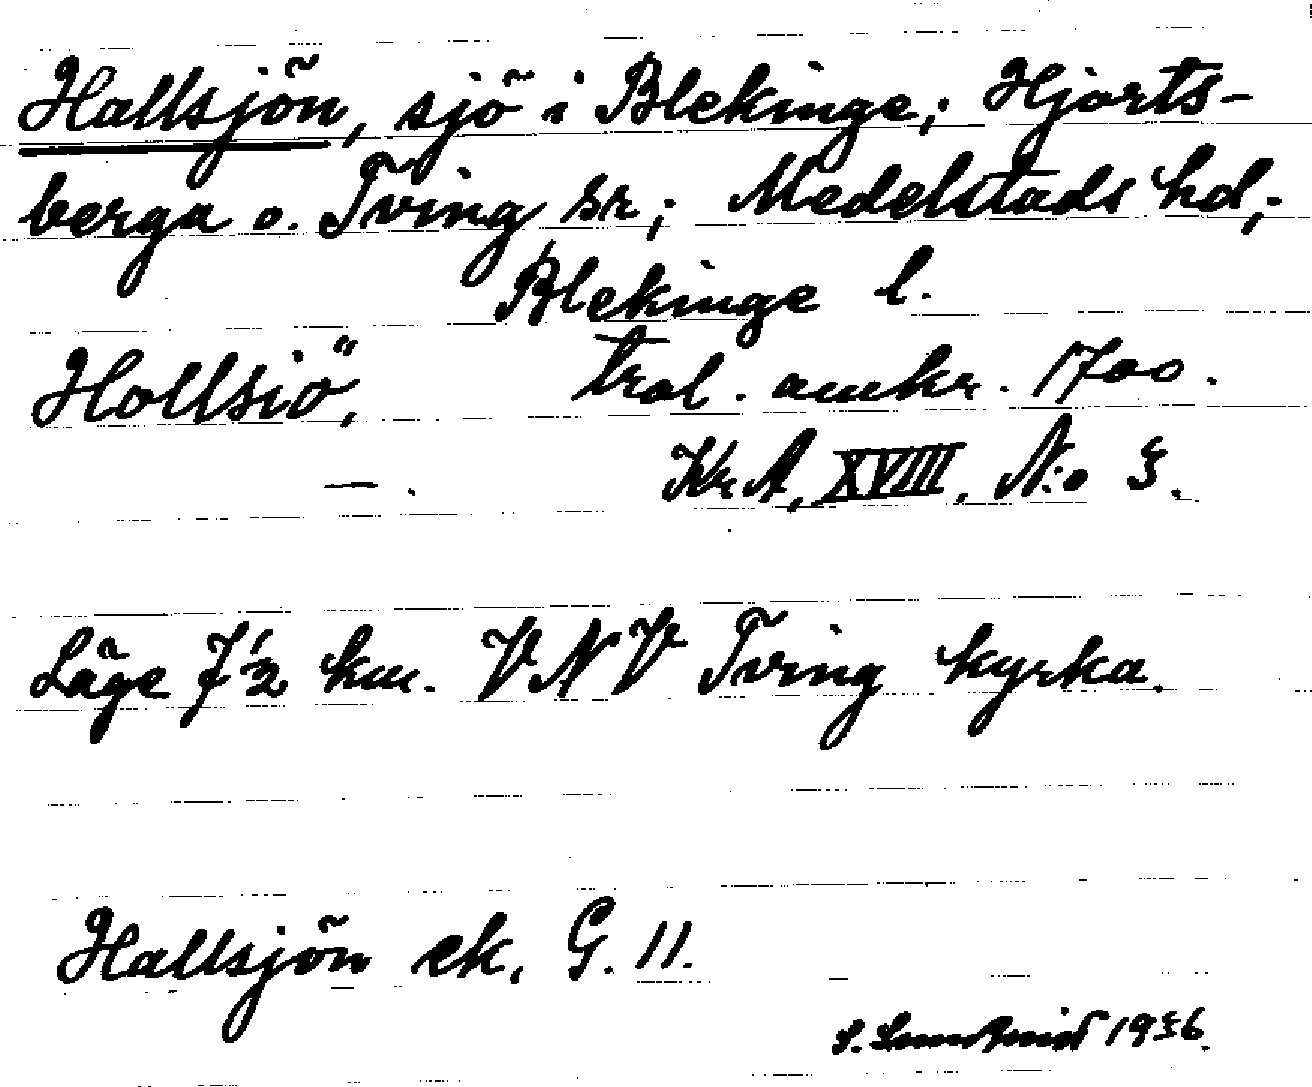 Hallsjön, sjö i Blekinge; Hjorts-
berga o. Tving sn; Medelstads hd,
Blekinge l.
Hollsiö, trol. omkr. 1700.
—. KrA, XVIII, N:o 5.
Läge 7 1/2 km. VNV Tving kyrka.
Hallsjön ek. G. 11.
S. 1936.